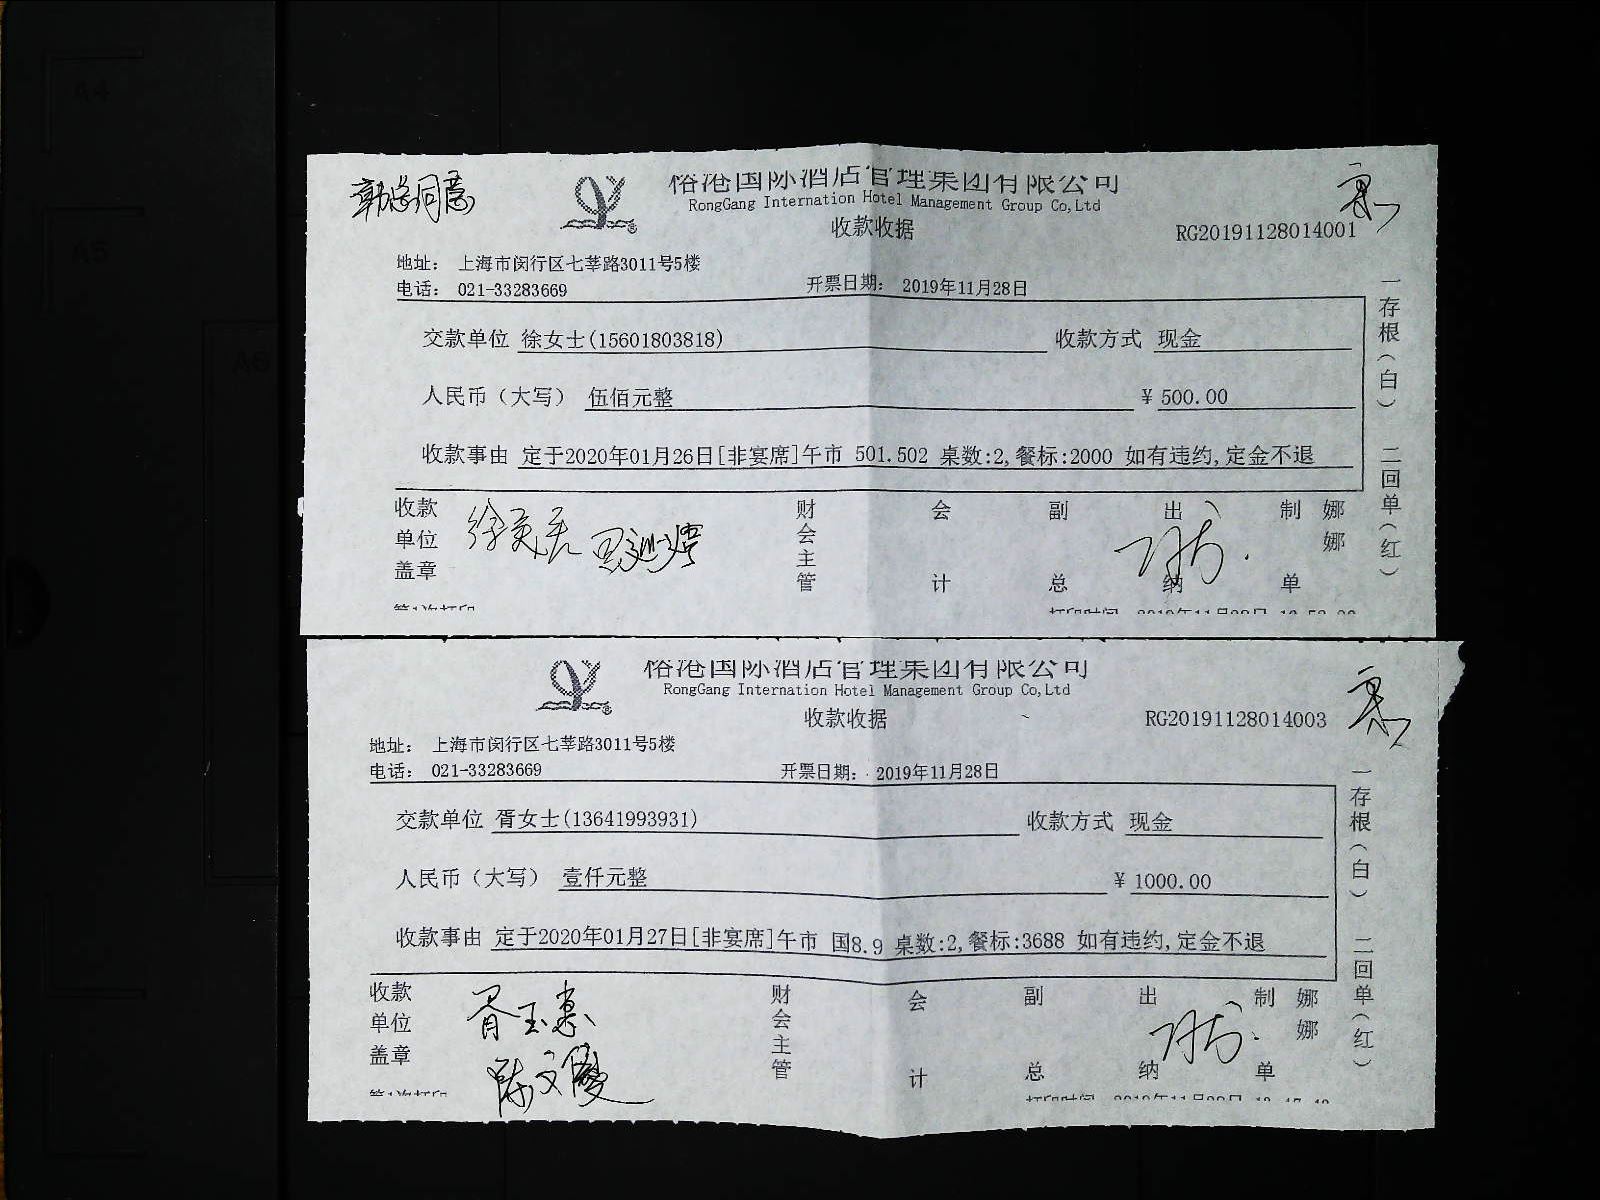 郭总同意
裕港国际酒店管理集团有限公司
RongGang Internation Hotel Management Group Co,Ltd
收款收据
RG20191128014001
地址： 上海市闵行区七莘路3011号5楼
电话： 021-33283669 开票日期： 2019年11月28日
交款单位 徐女士(15601803818) 收款方式 现金
人民币（大写） 伍佰元整 ¥ 500.00
收款事由 定于2020年01月26日[非宴席]午市 501.502 桌数:2,餐标:2000 如有违约,定金不退
一存根（白） 二回单（红）
收款单位盖章 财会主管 会计 副总 出纳 制单 娜娜
第1次打印 打印时间 2019年11月28日
裕港国际酒店管理集团有限公司
RongGang Internation Hotel Management Group Co,Ltd
收款收据
RG20191128014003
地址： 上海市闵行区七莘路3011号5楼
电话： 021-33283669 开票日期： 2019年11月28日
交款单位 胥女士(13641993931) 收款方式 现金
人民币（大写） 壹仟元整 ¥ 1000.00
收款事由 定于2020年01月27日[非宴席]午市 国8.9 桌数:2,餐标:3688 如有违约,定金不退
一存根（白） 二回单（红）
收款单位盖章 胥玉惠 财会主管 会计 副总 出纳 制单 娜娜
第1次打印 打印时间 2019年11月28日